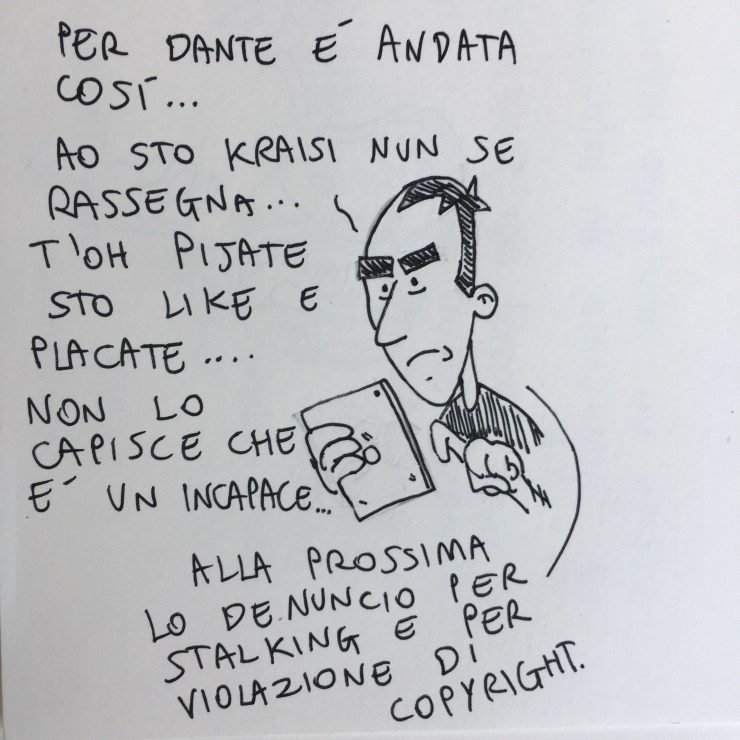 PER DANTE E´ ANDATA
COSÍ...
AO STO KRAISI NUN SE
RASSEGNA...
T'OH PIJATE
STO LIKE E
PLACATE....
NON LO
CAPISCE CHE
E´ UN INCAPACE...
ALLA PROSSIMA
LO DENUNCIO PER
STALKING E PER
VIOLAZIONE DI
COPYRIGHT.